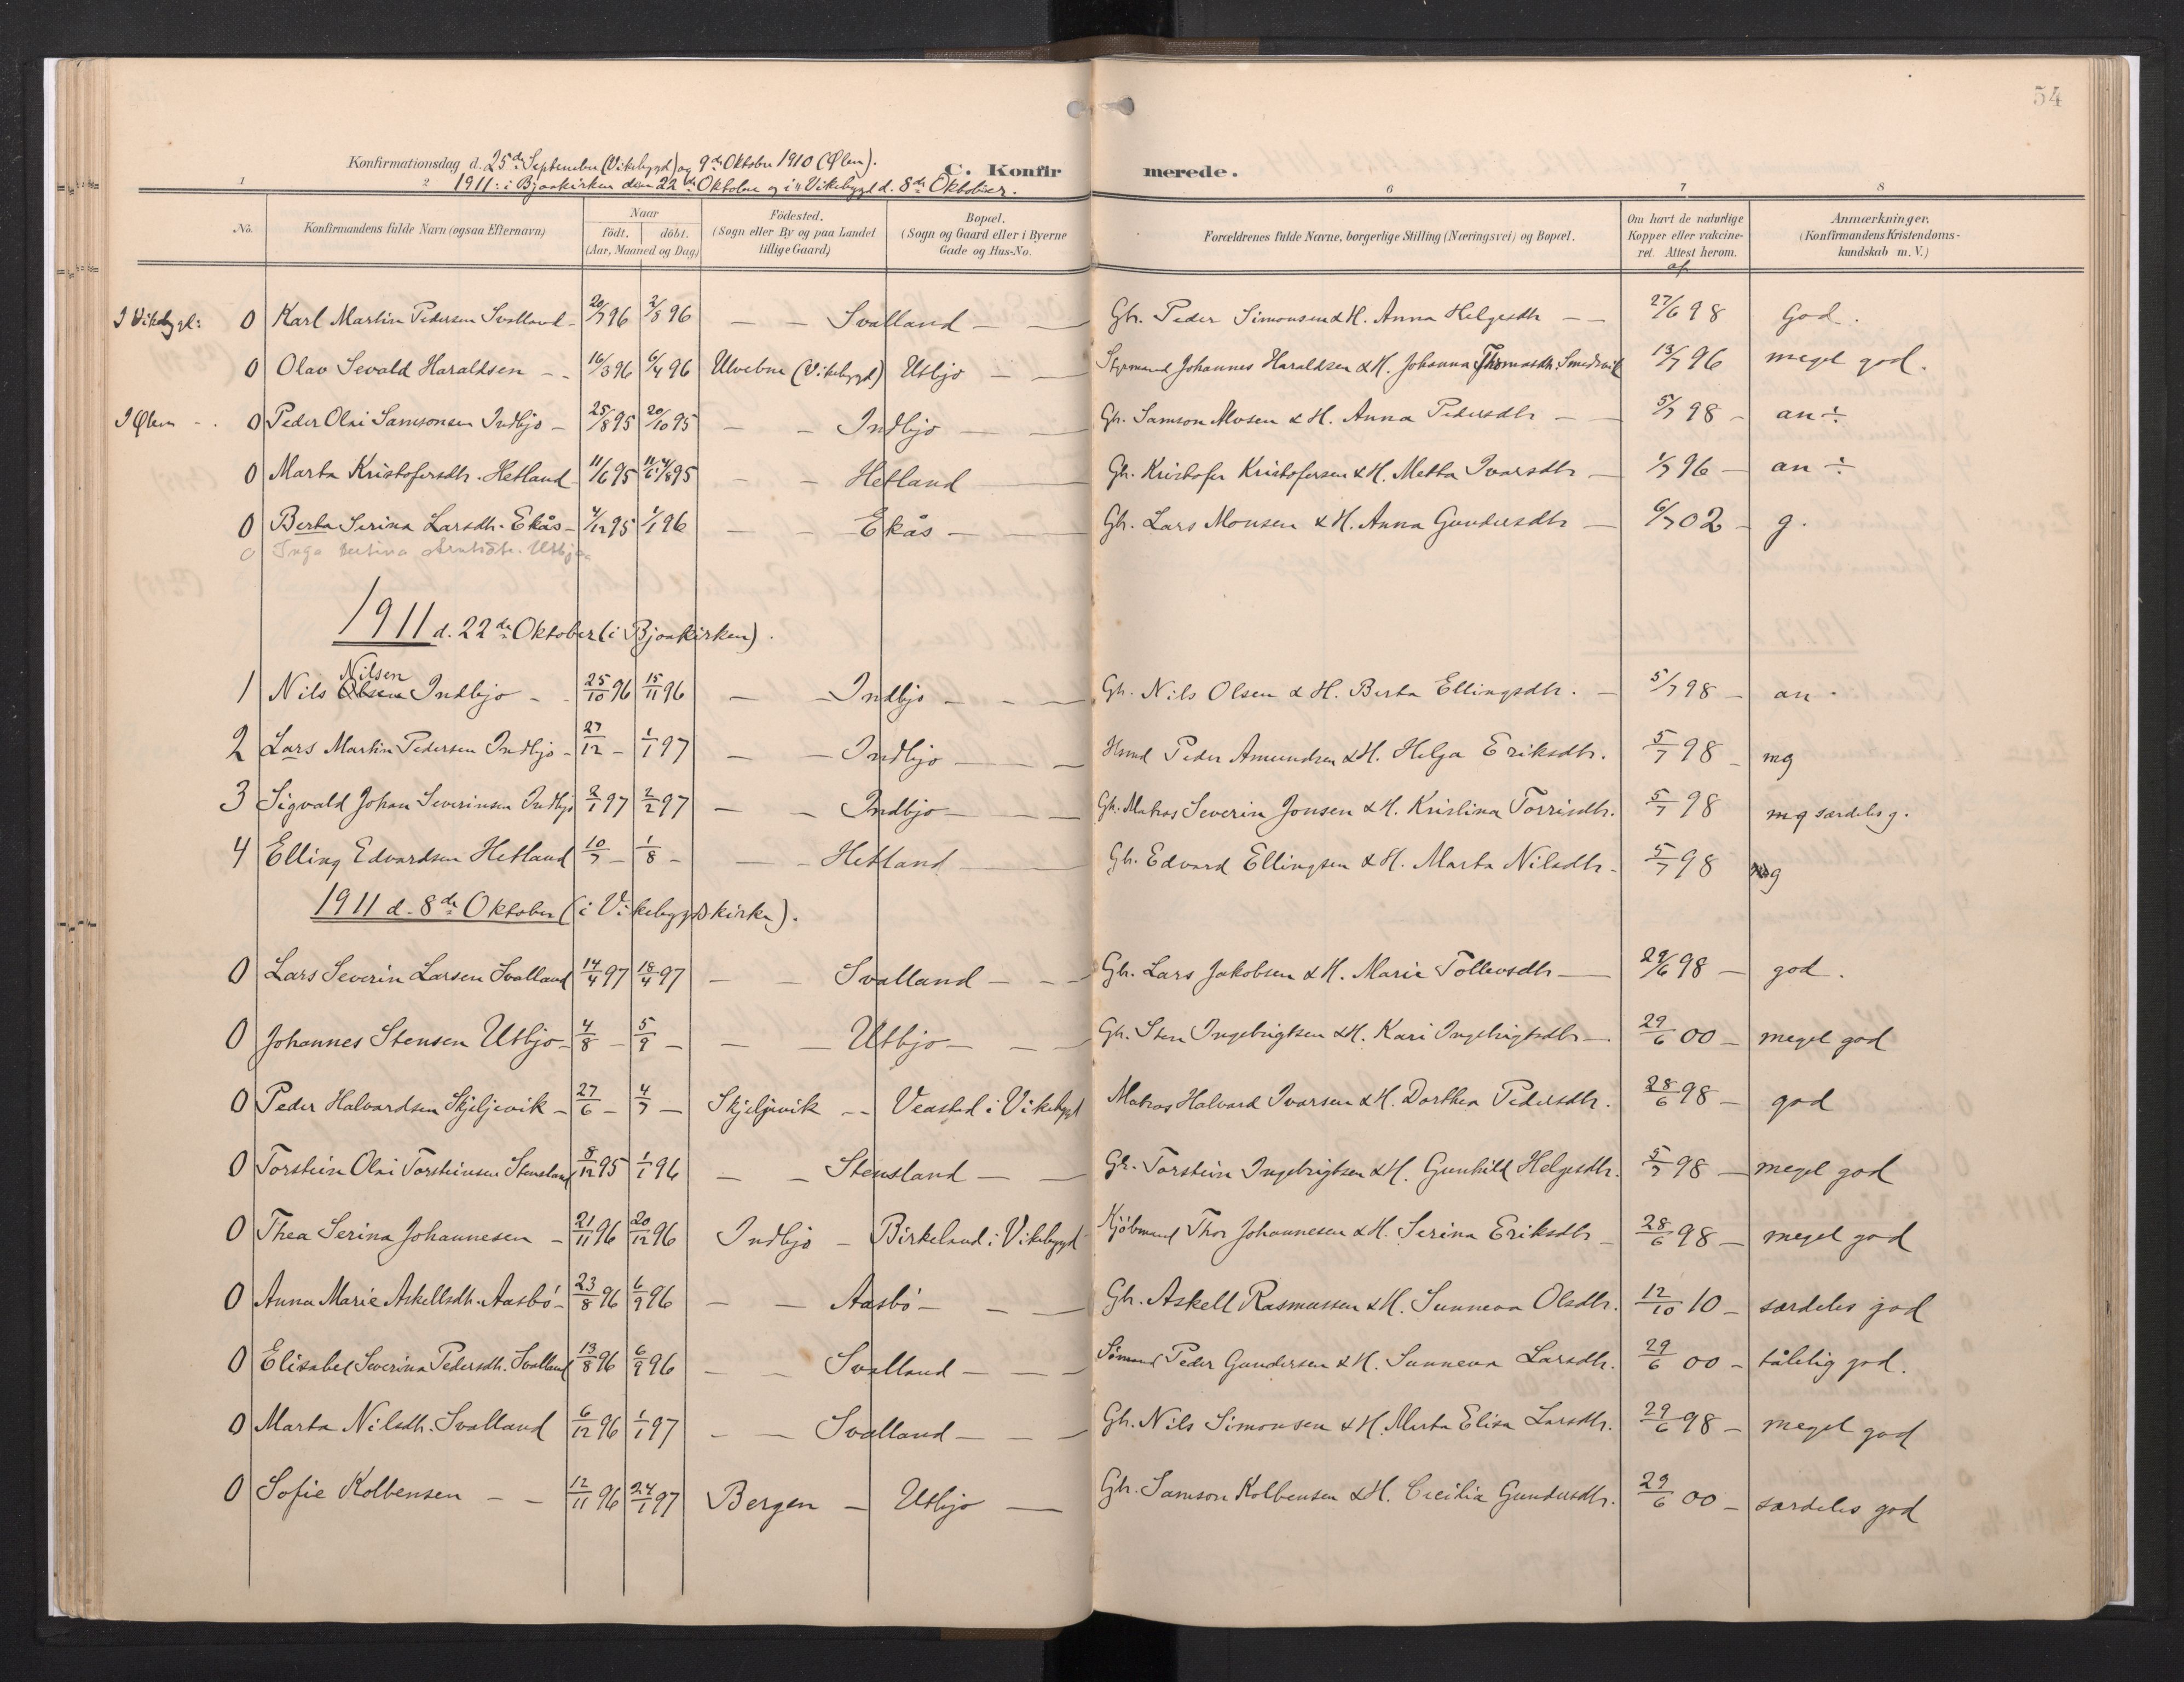 54
Konfirmationsdag d. 25de September (Vikebygd) og 9de Oktober 1910 (Ølen).
1911: i Bjoakirken den 22de Oktober og i Vikebygd d. 8de Oktober.
C. Konfirmerede.
1 2 6 7 8
No. Konfirmandens fulde Navn (ogsaa Efternavn) Naar født. døbt. (Aar, Maaned og Dag) Fødested. (Sogn eller By og paa Landet tillige Gaard) Bopæl. (Sogn og Gaard eller i Byerne Gade og Hus-No. Forældrenes fulde Navne, borgerlige Stilling (Næringsvei) og Bopæl. Om havt de naturlige Kopper eller vakcineret. Attest herom. af Anmærkninger. (Konfirmandens Kristendomskundskab m. V.)
I Vikebygd: 0 Karl Martin Pedersen Svalland - 20/7 96 2/8 96 — — Svalland — — Gbr. Peder Simonsen & H. Anna Helgesdtr — 27/6 98 God.
0 Olav Sevald Haraldsen - - 16/3 96 6/4 96 Ulvebne (Vikebygd) Utbjo — — Styrmand Johannes Haraldsen & H. Johanna Thomasdtr. Smedsvik 13/7 96 meget god.
I Ølen - . 0 Peder Olai Samsonsen Indbjo - 25/8 95 20/10 95 — — Indbjo — — Gbr. Samson Mosen & H. Anna Pedersdtr — 5/7 98 - an ÷
0 Marta Kristofersdtr. Hetland 11/6 95 95 — — Hetland — Gbr. Kristofer Kristofersen & H. Metta Ivarsdtr — 1/7 96 — an ÷
0 Berta Serina Larsdtr. Ekås - 4/12 95 1/1 96 — — Ekås — — Gbr. Lars Monsen & H. Anna Gundersdtr — 6/7 02 - g.
0 Inga Utbjoa
1911 d. 22de Oktober (i Bjoakirken).
1 Nils Olsen Nilsen Indbjo - - 25/10 96 15/11 96 — — Indbjo - - — Gbr. Nils Olsen & H. Berta Ellingsdtr. — 5/7 98 — an -
2 Lars Martin Pedersen Indbjo - 27/12 - 1/1 97 — — Indbjo — — Hsmd Peder Amundsen & H. Helga Eriksdtr. 5/7 98 - mg
3 Sigvald Johan Severinsen Indbjo 2/1 97 2/2 97 — — Indbjo — — Gbr. Matros Severin Jonsen & H. Kristina Torrisdtr. 5/7 98 mg særdeles g.
4 Elling Edvardsen Hetland 10/7 - 1/8 - — — Hetland — Gbr. Edvard Ellingsen & H. Marta Nilsdtr - 5/7 98 g
1911 d. 8de Oktober (i Vikebygds kirke).
0 Lars Severin Larsen Svalland 14/4 97 18/4 97 — — Svalland — — Gbr. Lars Jakobsen & H. Marie Tollevsdtr — 29/6 98 — god.
0 Johannes Stensen Utbjo - 4/8 - 5/9 - — — Utbjo — — Gbr. Sten Ingebrigtsen & H. Kari Ingebrigtsdtr — 29/6 00 — meget god
0 Peder Halvardsen Skjeljevik - 27/6 - 4/7 — Skjeljevik -- Veastad i Vikebygd Matros Halvard Ivarsen & H. Dorthea Pedersdtr. 28/6 98 — god
0 Torstein Olai Torsteinsen Stensland 8/12 95 1/1 96 — — Stensland — — Gbr. Torstein Ingebrigtsen & H. Gunhild Helgesdtr. 5/7 98 — meget god
0 Thea Serina Johannesen - 21/11 96 20/12 96 Indbjo — Birkeland i Vikebygd Kjøbmand Thor Johannesen & H. Serina Eriksdtr - 28/6 98 — meget god
0 Anna Marie Askellsdtr. Aasbö - 23/8 96 6/9 96 — — Aasbö — — Gbr. Askell Rasmussen & H. Sunneva Olsdtr. 12/10 10 - særdeles god
0 Elisabet Severina Pedersdtr. Svalland 13/8 96 6/9 96 — — Svalland — — Sömand Peder Gundersen & H. Sunneva Larsdtr. 29/6 00 - tålelig god.
0 Marta Nilsdtr. Svalland 6/12 96 1/1 97 — — Svalland — — Gbr. Nils Simonsen & H. Marta Elisa Larsdtr. 29/6 98 - meget god
0 Sofie Kolbensen - - 12/11 96 24/1 97 Bergen — Utbjo — Gbr. Samson Kolbensen & H. Cecilia Gundersdtr. 29/6 00 - særdeles god